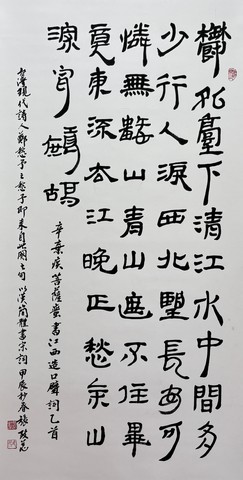 鬱孤臺下清江水中間多
少行人淚西北望長安可
憐無數山青山遮不住畢
竟東流去江晚正愁余山
深聞鷓鴣
辛棄疾菩薩蠻書江西造口壁詞乙首
台灣現代詩人鄭愁予之愁予即來自此闋之句 以漢簡體書宋詞 甲辰杪春